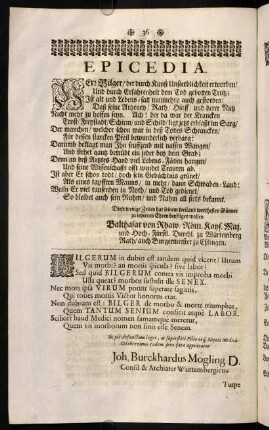 36
EPICEDIA.
HErr Bilger, der durch Kunst Unsterblichkeit erworben/
Und durch Erfahrenheit dem Tod gebotten Trutz:
Ist alt und Lebens-satt nunmehro auch gestorben:
Daß seine Artzeney, Rath, Hülff und deren Nutz
Nicht mehr zu hoffen seyn. Ach! der da war der Krancken
Trost, Freystadt, Schirm und Schild ligt jetzt erblaßt im Sarg/
Der manchen, welcher schon war in deß Todes Schrancken/
Für dessen starcken Pfeil verwunderlich verbarg:
Darumb beklagt man Ihn seuffzend mit nassen Wangen/
Und stehet gantz betrübt ein jeder bey dem Grab:
Denn an deß Artztes Hand viel Lebens-Fäden hangen/
Und seine Wissenschafft offt wendet Trauren ab.
Ist aber Er schon todt, doch sein Gedächtnis grünet/
Als eines tapffern Manns, in unser Schwaben-Land:
Weiln Er viel tausenden in Noth, und Tod gedienet
So bleibet auch sein Ruhm, und Nahm all stets bekannt.
Balthasar von Rhaw, Röm. Käys. Maj.
und Hoch-Fürstl. Durchl. zu Würtemberg
Rath, auch Burgermeister zu Eßlingen.
BILGERUM in dubio est tandem quid vicerit: Utrum
Vis morbi? an mortis spicula? sive labor?
Sed quid BILGERUM contra vis improba morbi
Ulla queat? morbos sustulit ille SENEX.
Nec mors ipsa VIRUM potuit superare sagittis,
Qui toties mortis Victor honoris erat.
Non dubium est: BILGER de morbo & morte triumphat,
Quem TANTUM SENIUM conficit atque LABOR.
Scilicet haud Medici nomen famamque meretur,
Quem vis morborum non sinit esse Senem.
Joh. Burckhardus Mögling D.
Consil. & Archiater Wurtembergicus
Turpe